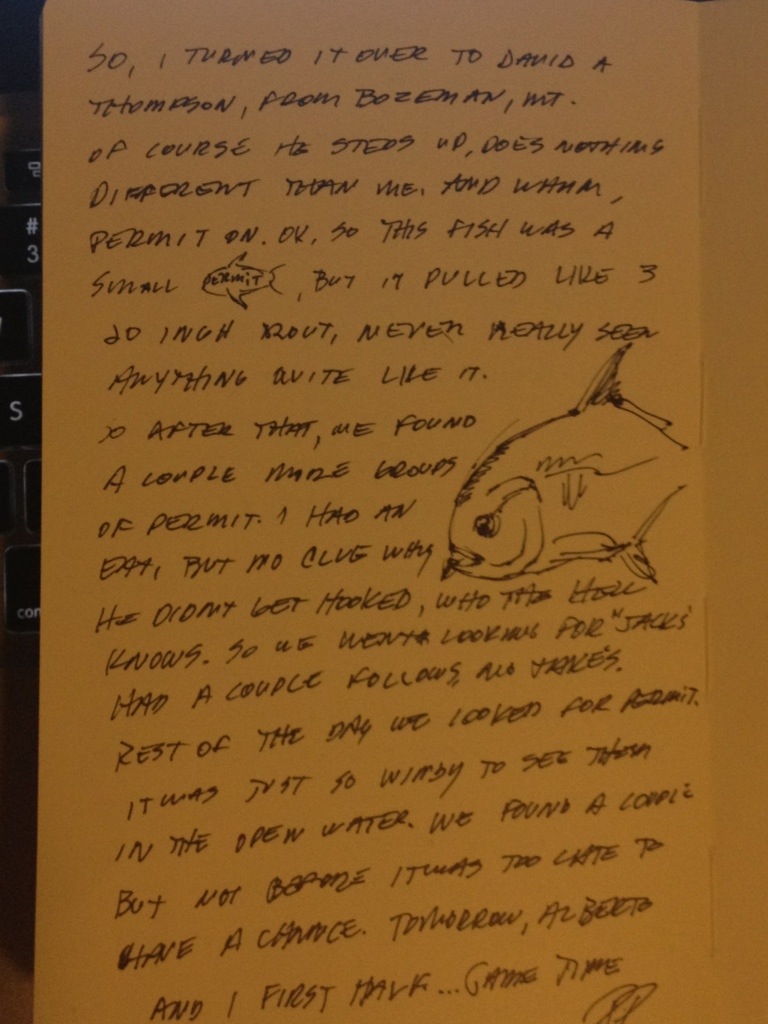 SO, I TURNED IT OVER TO DAVID A
THOMPSON, FROM BOZEMAN, MT.
OF COURSE HE STEPS UP, DOES NOTHING
DIFFERENT THAN ME. AND WHAM,
PERMIT ON. OK, SO THIS FISH WAS A
SMALL PERMIT, BUT IT PULLED LIKE 3
20 INCH TROUT, NEVER REALLY SEEN
ANYTHING QUITE LIKE IT.
SO AFTER THAT, WE FOUND
A COUPLE MORE GROUPS
OF PERMIT. I HAD AN
EAT, BUT NO CLUE WHY
HE DIDN'T GET HOOKED, WHO THE HELL
KNOWS. SO WE WENT LOOKING FOR "JACKS"
HAD A COUPLE FOLLOWS, NO TAKES.
REST OF THE DAY WE LOOKED FOR PERMIT.
IT WAS JUST SO WINDY TO SEE THEM
IN THE OPEN WATER. WE FOUND A COUPLE
BUT NOT BEFORE IT WAS TOO LATE TO
HAVE A CHANCE. TOMORROW, ALBERTO
AND I FIRST WALK... GAME TIME
#
3
S
con